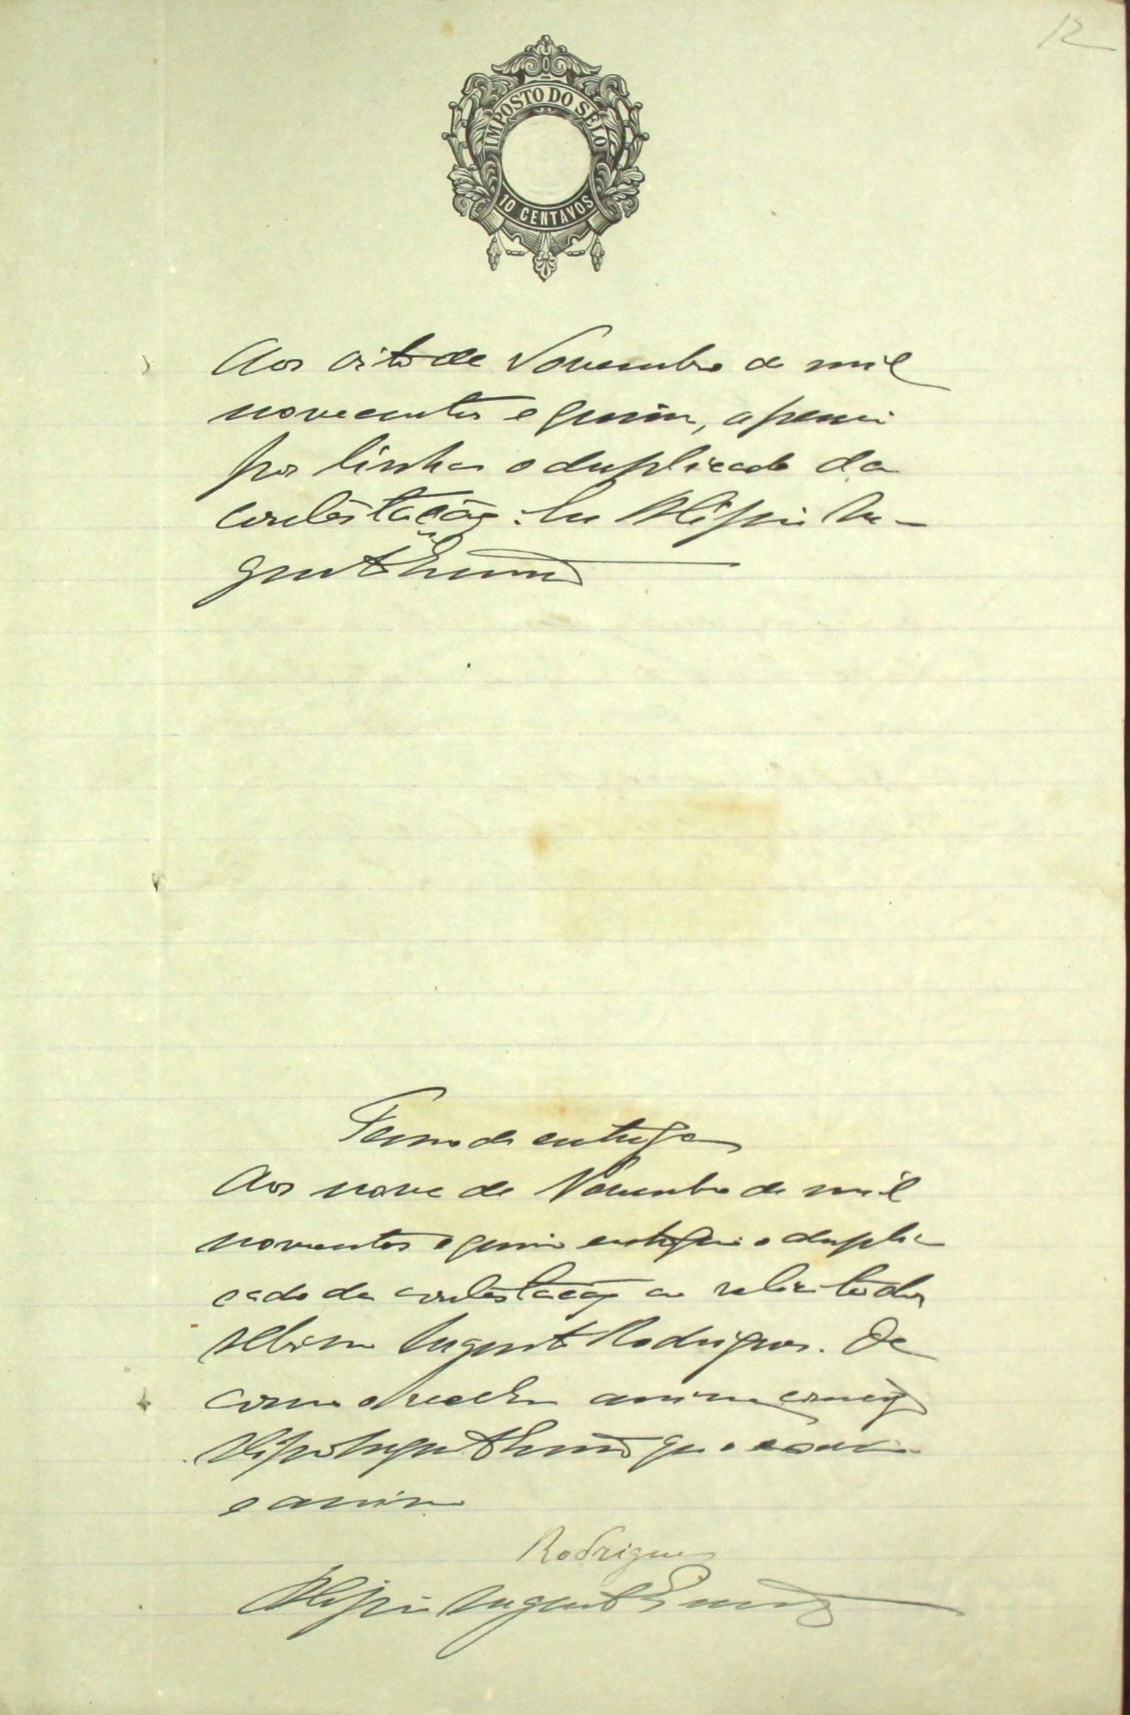 12
IMPOSTO DO SELO
10 CENTAVOS
Aos oito de Novembro de mil
novecentos e quinze, apensei
por linha o duplicado da
contestação. Eu Alipio Au-
gusto
Termo de entrega
Aos nove de Novembro de mil
novecentos e quinze entreguei o dupli
cado da contestação ao solicitador
Albino Augusto Rodrigues. De
como o recebeu assina comigo
Alipio Augusto que o escrevi
e assino
Rodrigues
Alipio Augusto